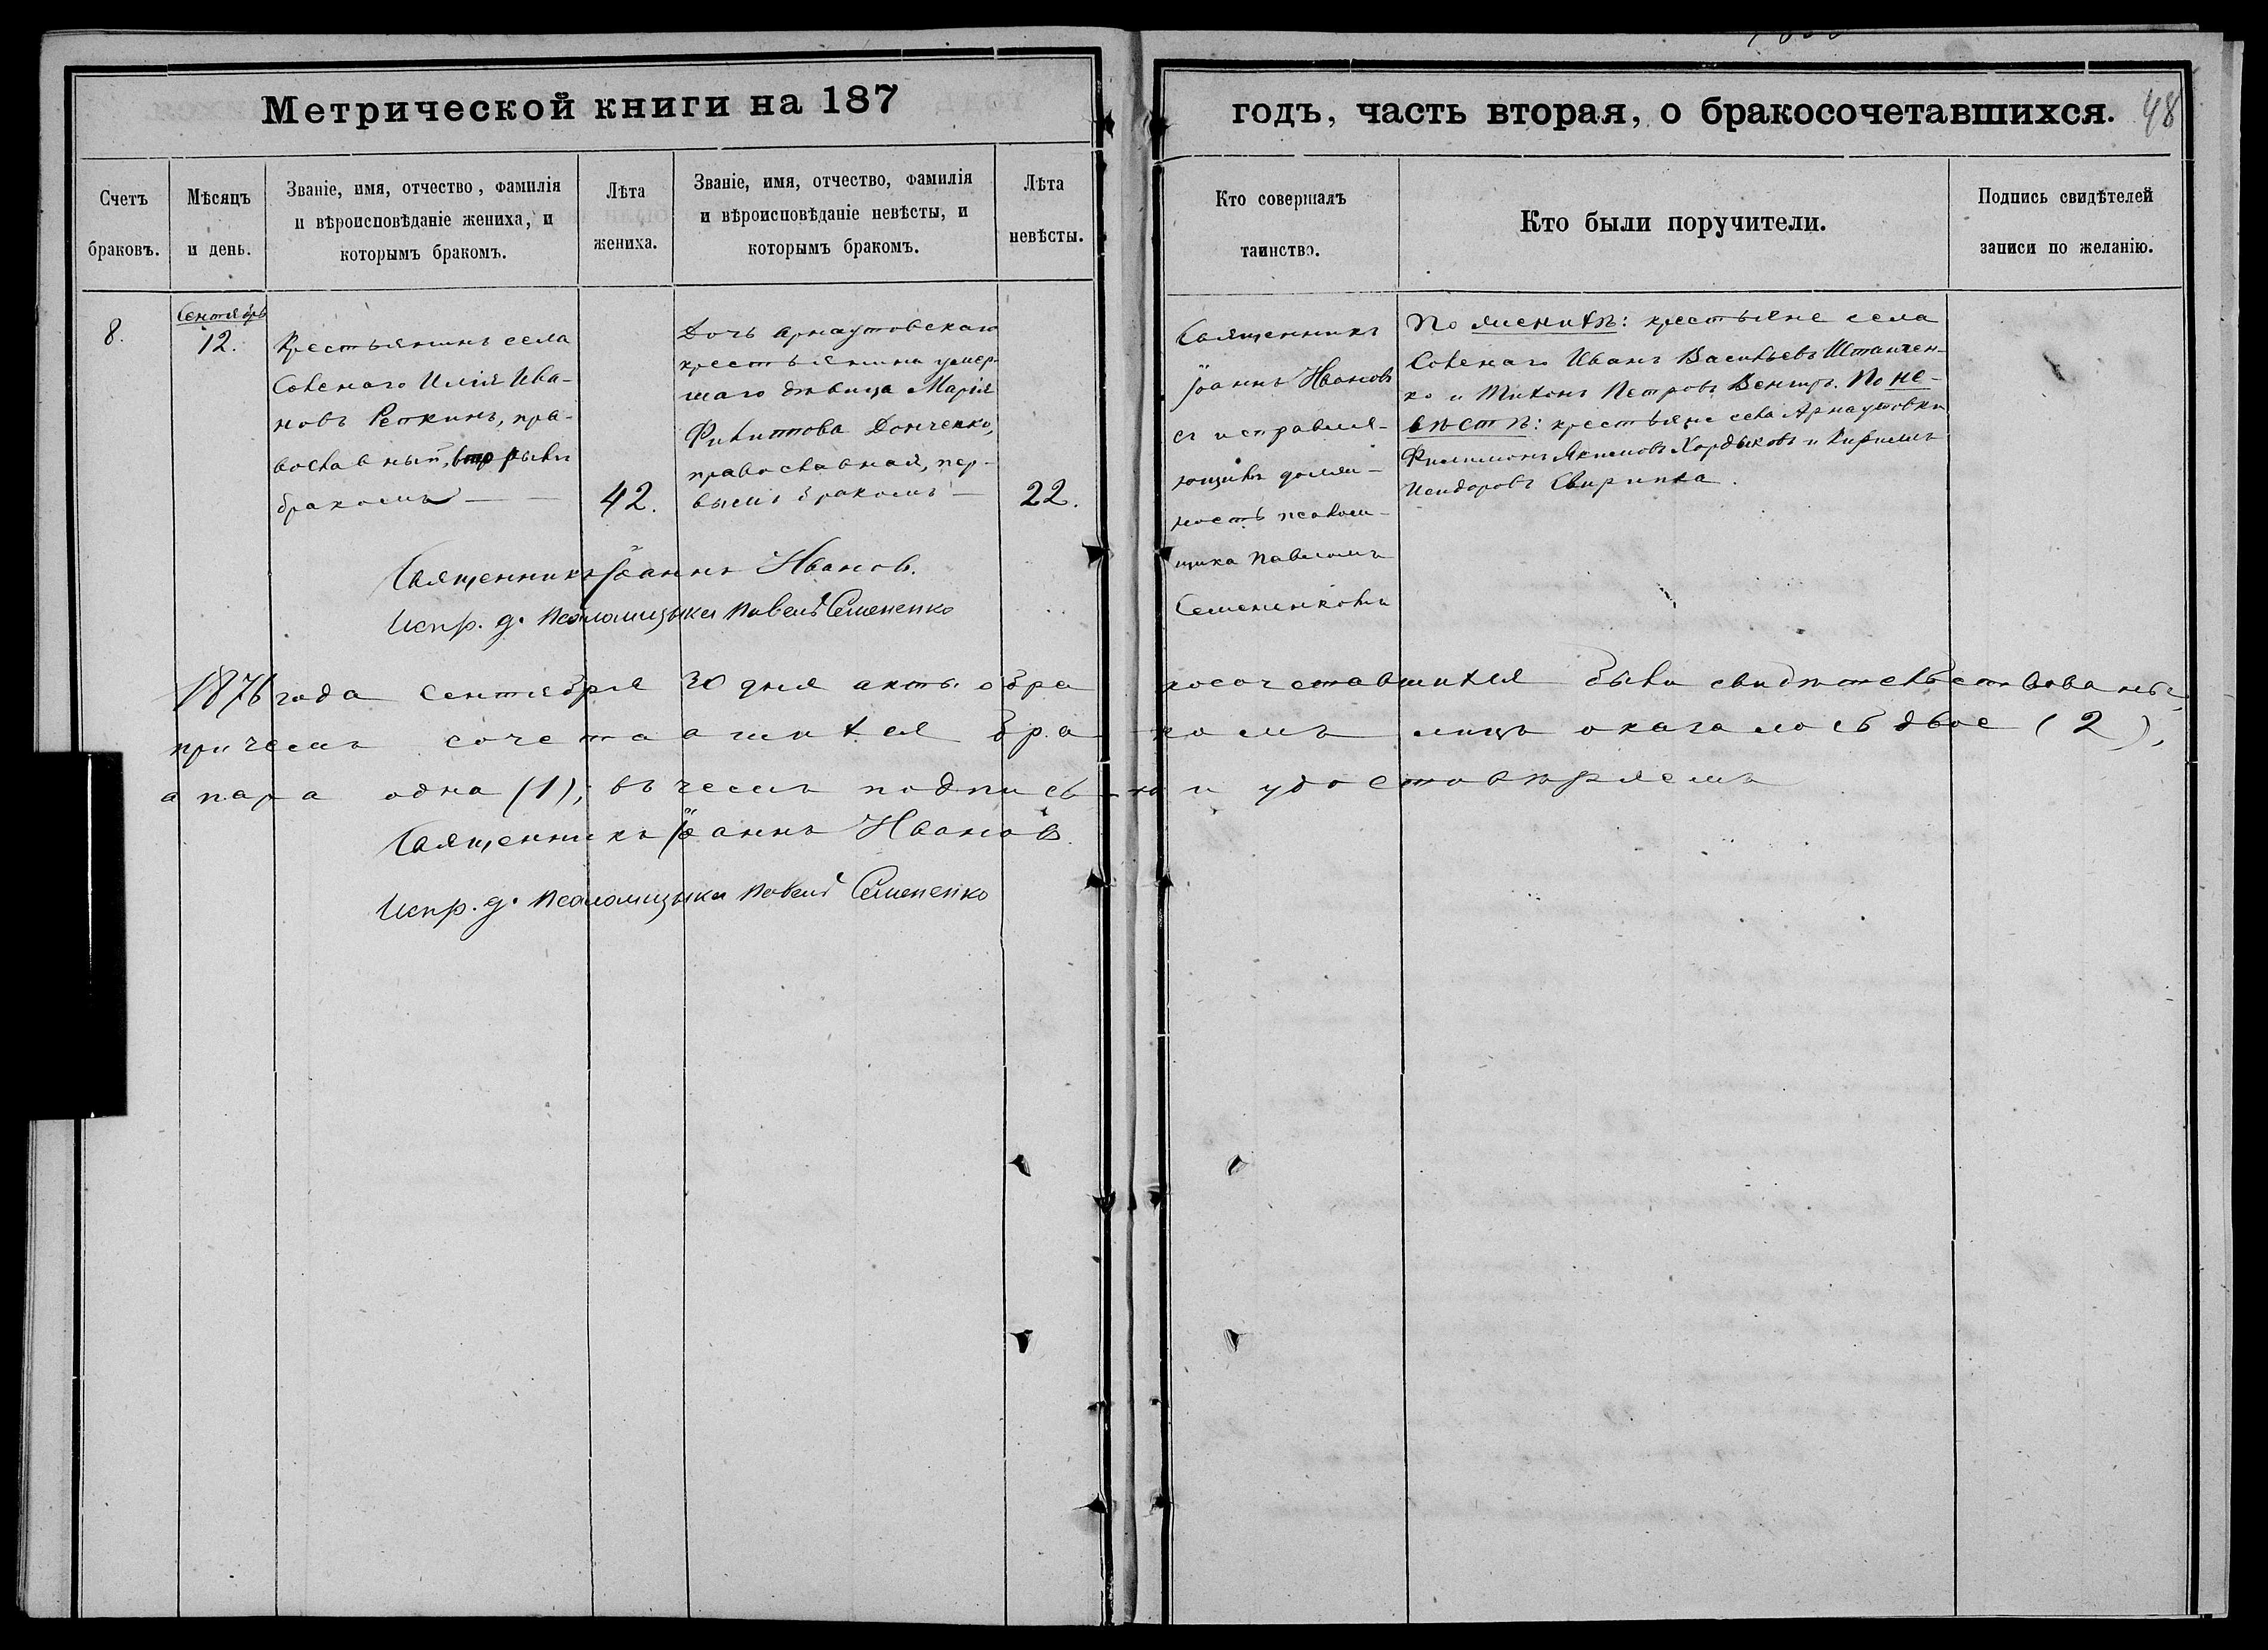 Метрической книги на 187
годъ, часть вторая, о бракосочетавшихся. 48
Счетъ
браковъ.
Мѣсяцъ
и день.
Званіе, имя, отчество, фамилія
и вѣроисповѣданіе жениха, и
которымъ бракомъ.
Лѣта
жениха.
Званіе, имя, отчество, фамилія
и вѣроисповѣданіе невѣсты, и
которымъ бракомъ.
Лѣта
невѣсты.
Кто совершалъ
таинство.
Кто были поручители.
Подпись свидѣтелей
записи по желанію.
8.
Сентябрь
12.
Крестьянинъ села
Соленаго Илія Ива-
новъ Репкинъ, пра-
вославный, вторымъ
бракомъ
42.
Дочь Арнаутовскаго
крестьянина умер-
шаго дѣвица Марія
Филиппова Донченко,
православная, пер-
вымъ бракомъ
22.
Священникъ
Іоаннъ Ивановъ
съ исправля-
ющимъ долж-
ность псалом-
щика Павломъ
Семененковымъ
По женихѣ: крестьяне села
Соленаго Иванъ Васильевъ Штанчен-
ко и Тихонъ Петровъ Венгеръ. По не-
вѣстѣ: крестьяне села Арнаутовки
Филимонъ Якимовъ Хордыковъ и Кириллъ
Исидоровъ Свирипка.
Священникъ Іоаннъ Иванов.
Испр. д. псаломщика Павелъ Семененко
1876 года Сентября 30 дня акты о бракосочетавшихся были свидѣтельствованы,
причемъ сочетавшихся бракомъ лицъ оказалось двое (2),
а пара одна (1); въ чемъ подписью и удостовѣряемъ
Священникъ Іоаннъ Иванов.
Испр. д. псаломщика Павелъ Семененко